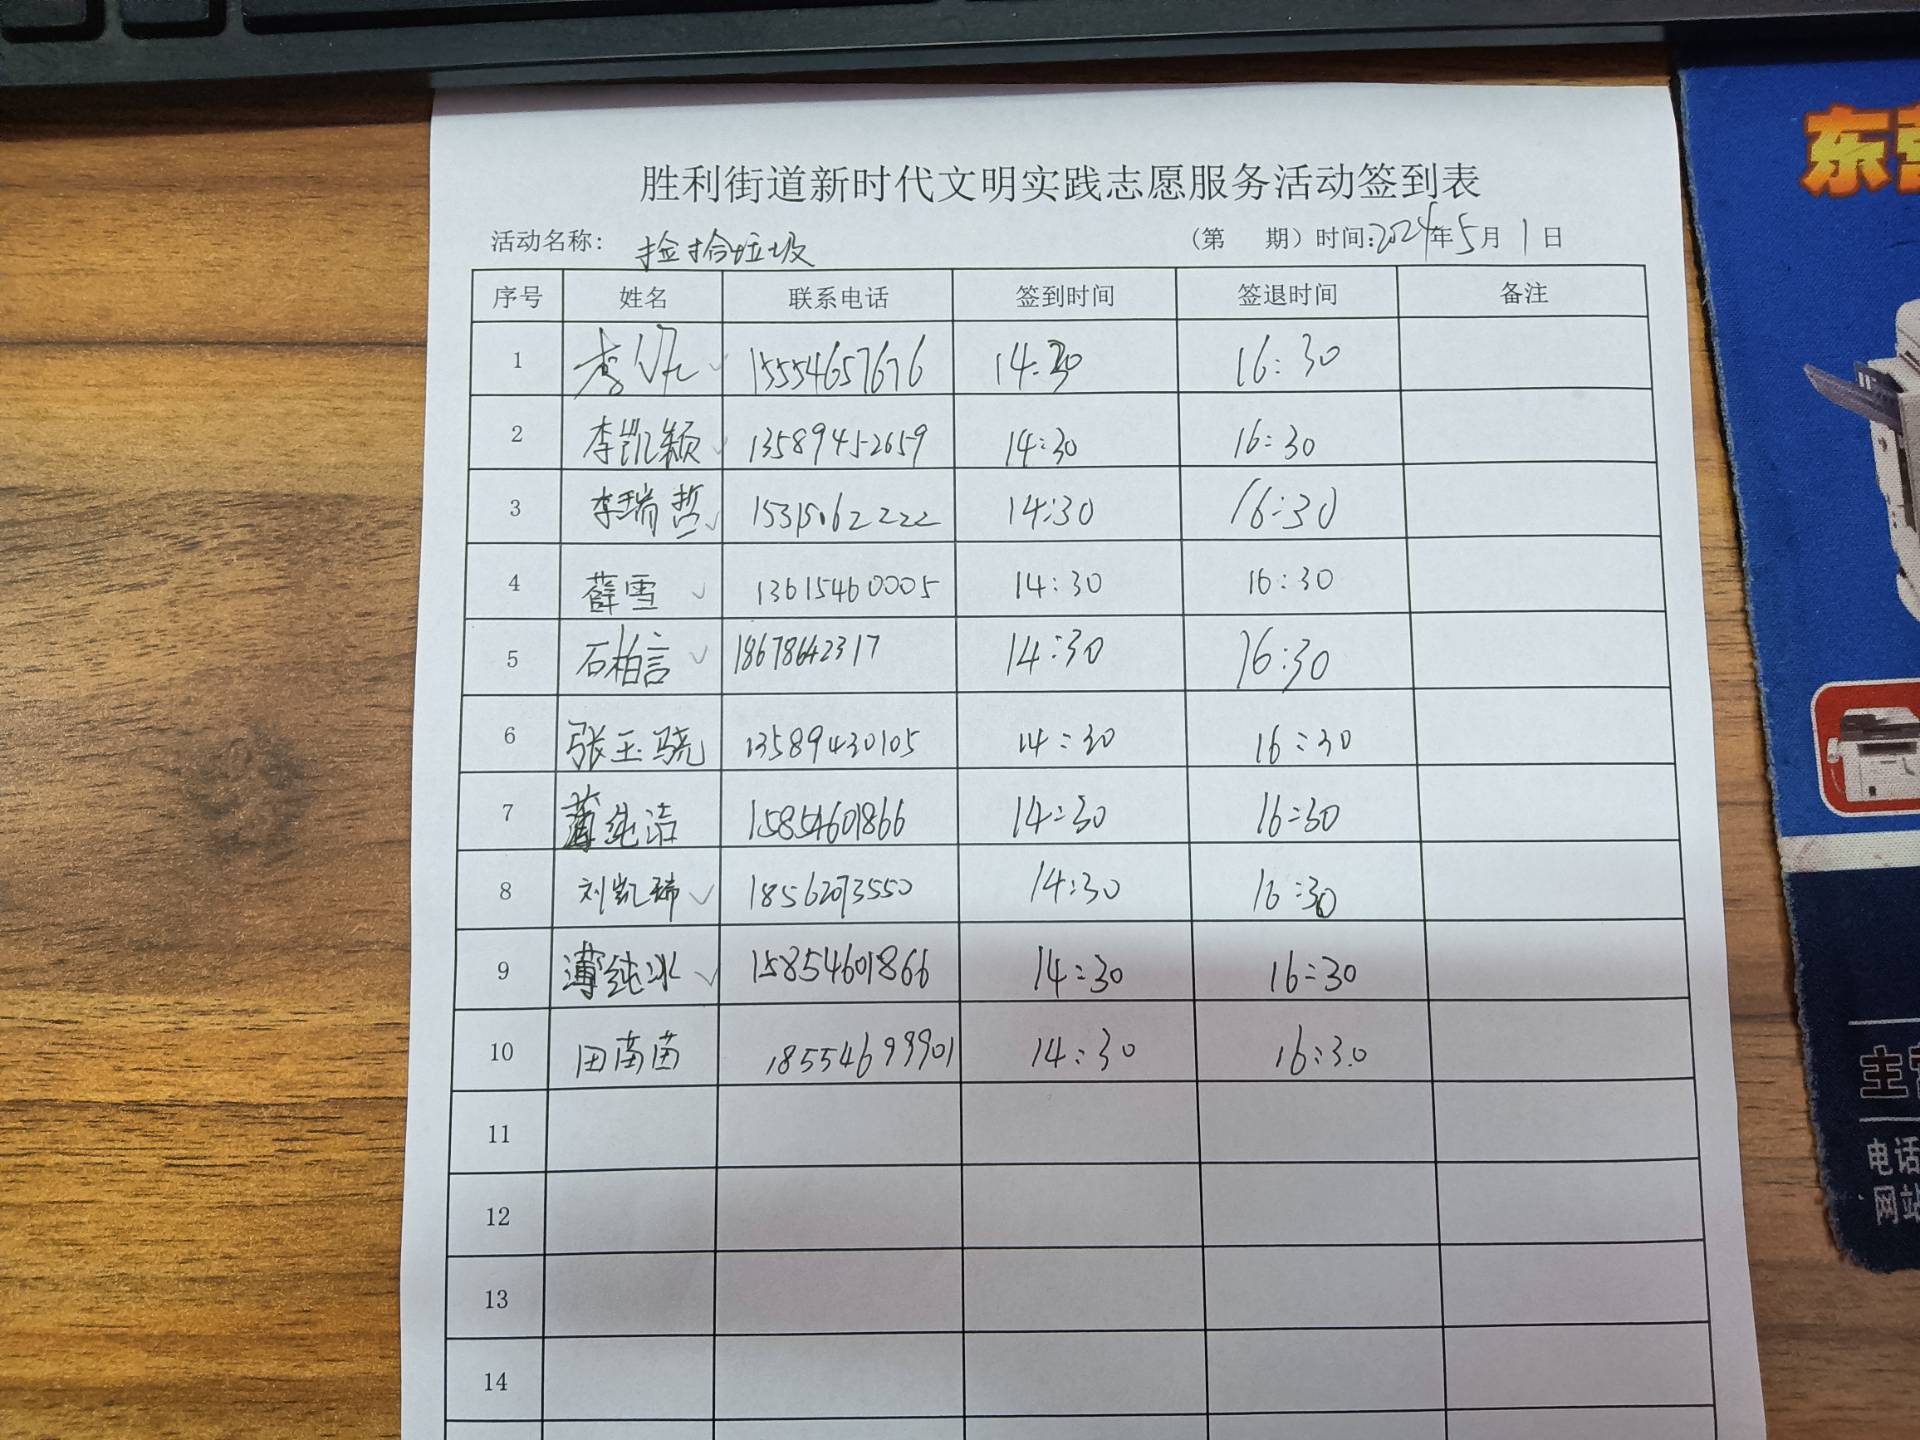 胜利街道新时代文明实践志愿服务活动签到表
活动名称: 捡拾垃圾 (第 期) 时间:2024年5月1日
序号 姓名 联系电话 签到时间 签退时间 备注
1 李 15554657676 14:30 16:30
2 李凯颖 13589452659 14:30 16:30
3 李瑞哲 15315062222 14:30 16:30
4 薛雪 13615460005 14:30 16:30
5 石柏言 18678642317 14:30 16:30
6 张玉骁 13589430105 14:30 16:30
7 薄纯洁 15854601866 14:30 16:30
8 刘凯瑞 18562073550 14:30 16:30
9 薄纯冰 15854601866 14:30 16:30
10 田苗苗 18554699901 14:30 16:30
11
12
13
14
东营
主营
电话
网站